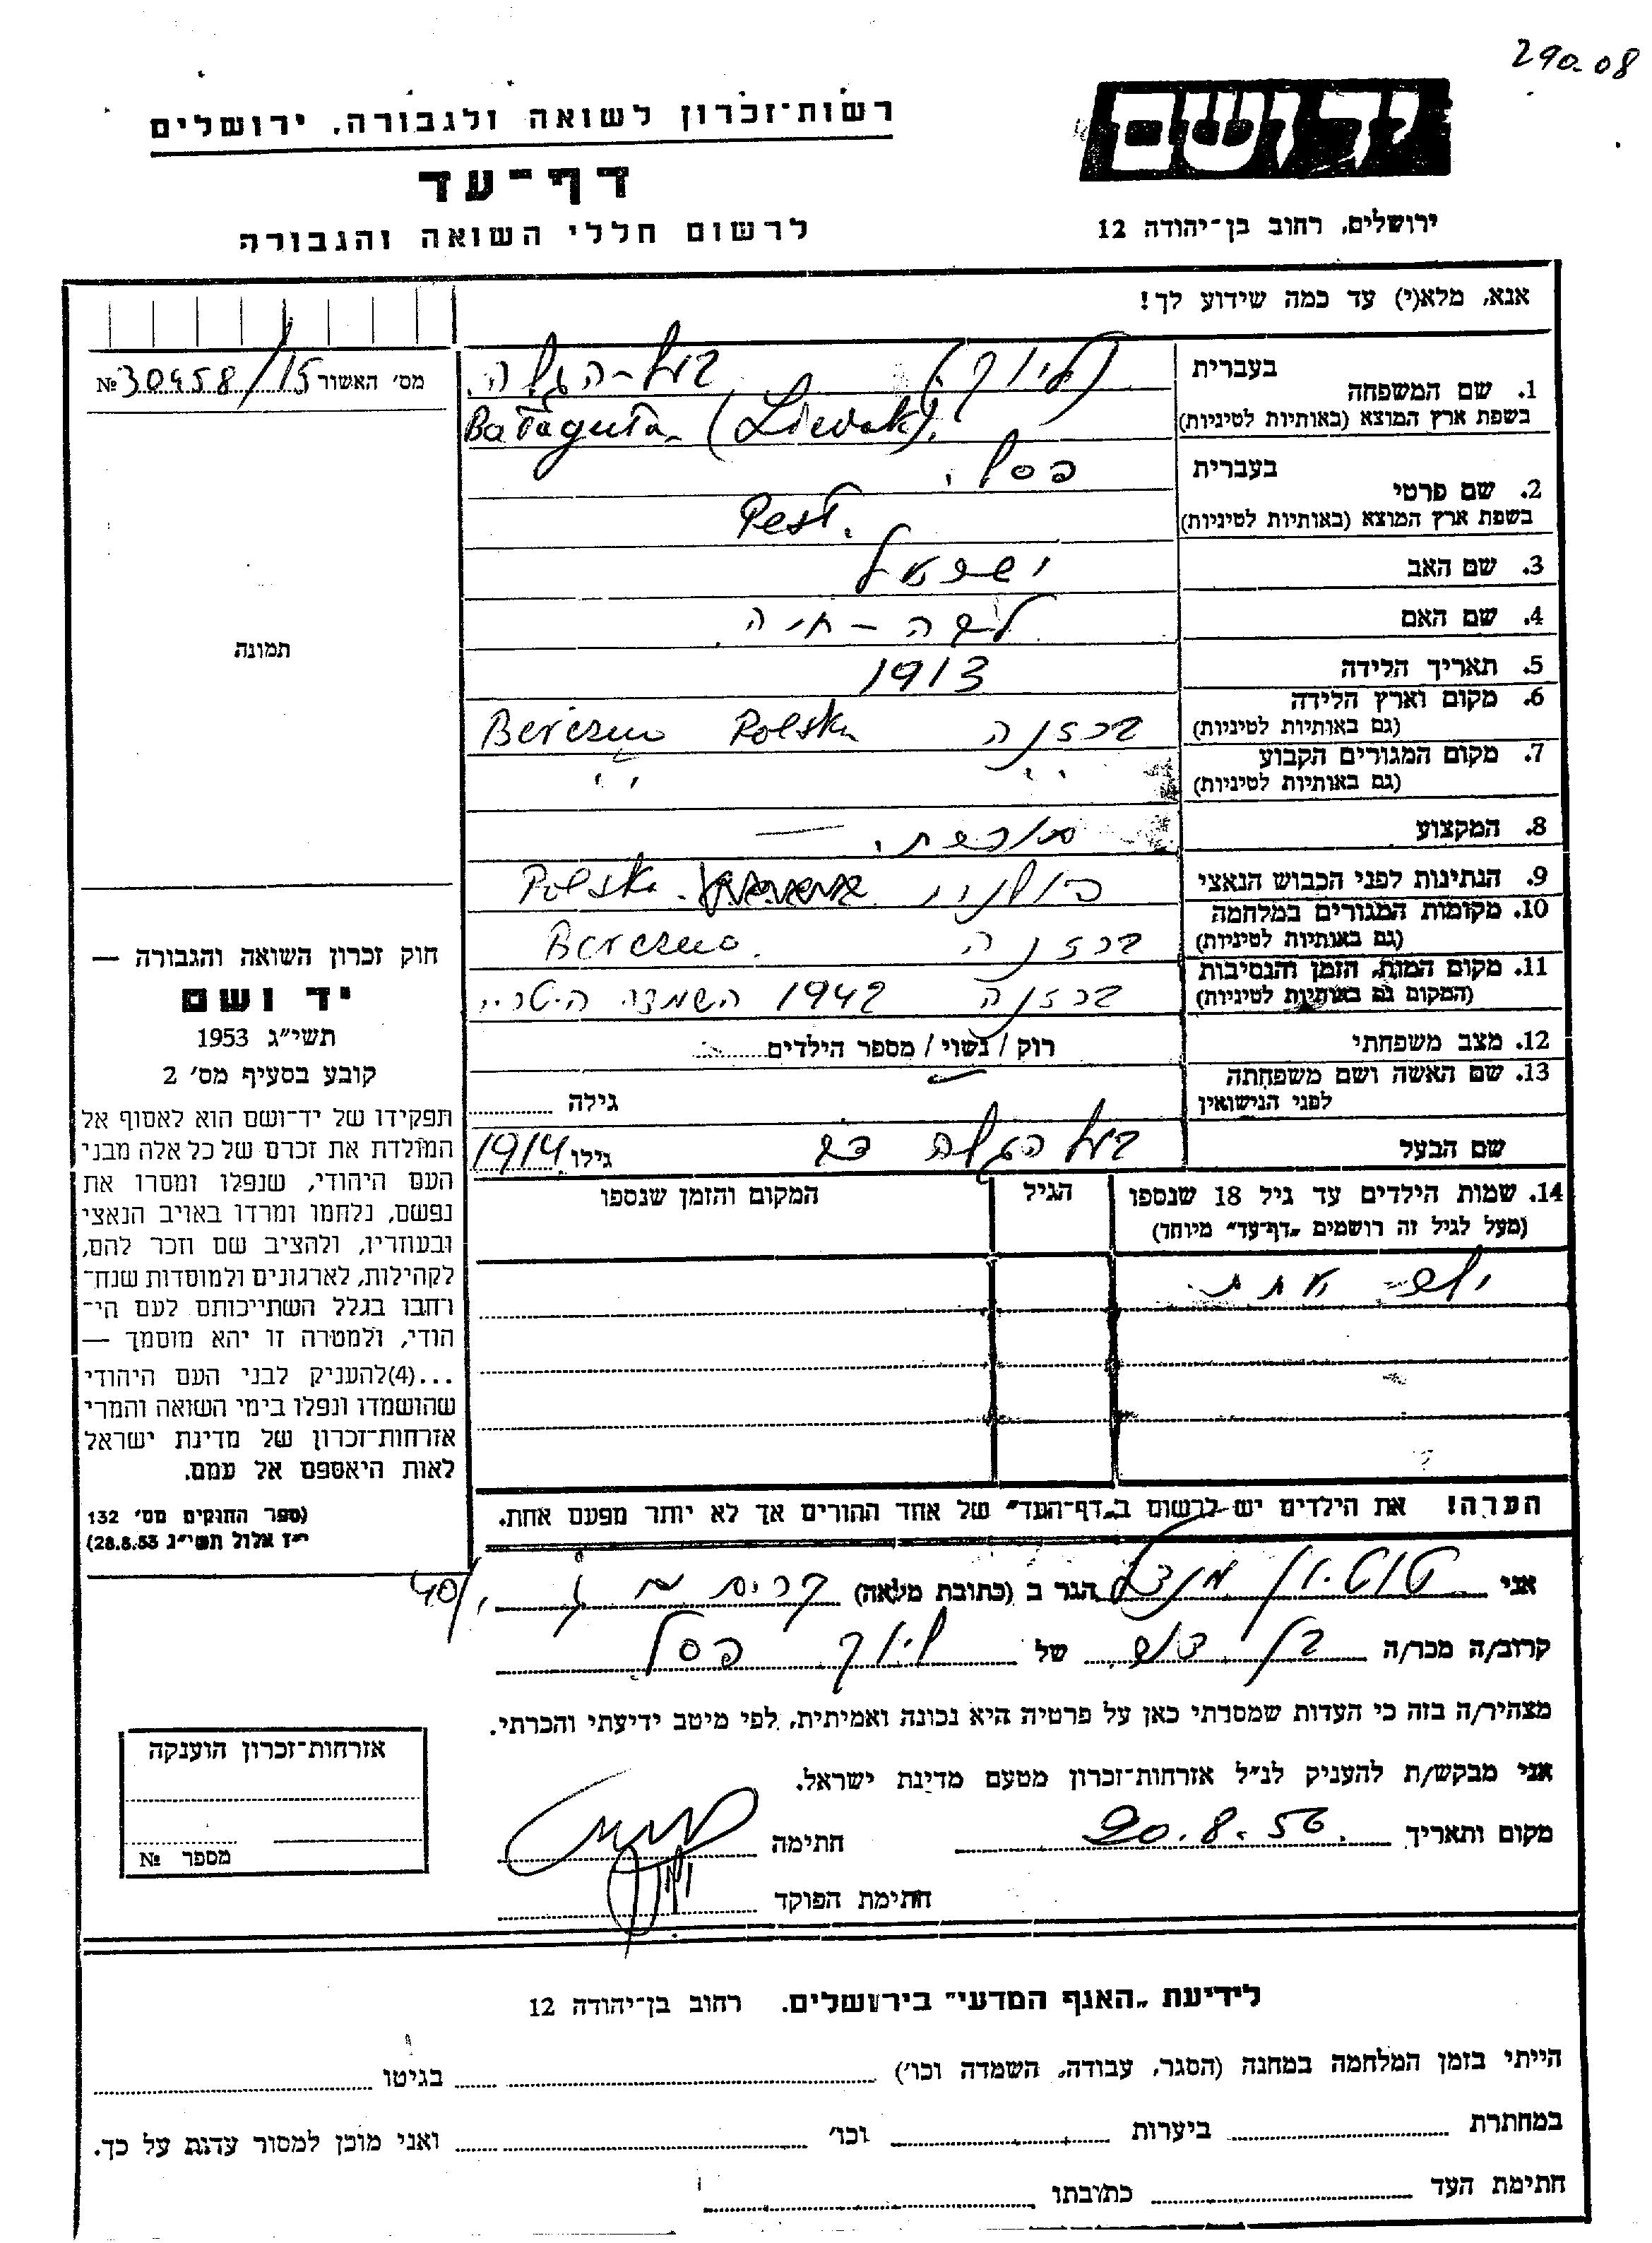 290.08
יד ושם
ירושלים, רחוב בן־יהודה 12
רשות־זכרון לשואה ולגבורה, ירושלים
דף־עד
לרשום חללי השואה והגבורה
אנא, מלא(י) עד כמה שידוע לך!
מס׳ האשור № 30458/15
תמונה
1. שם המשפחה
בעברית
(ליוק) בעל-הגלה.
בשפת ארץ המוצא (באותיות לטיניות)
Bałaguła (Liewak).
2. שם פרטי
בעברית
פסל.
בשפת ארץ המוצא (באותיות לטיניות)
Pesl.
3. שם האב ישראל
4. שם האם ליבה - חיה.
5. תאריך הלידה 1913
6. מקום וארץ הלידה
(גם באותיות לטיניות)
ברזנה Polska Berezno
7. מקום המגורים הקבוע
(גם באותיות לטיניות)
״ ״
8. המקצוע
9. הנתינות לפני הכבוש הנאצי פולנית Polska.
10. מקומות המגורים במלחמה
(גם באותיות לטיניות)
ברזנה Berezno.
11. מקום המות, הזמן והנסיבות
(המקום גם באותיות לטיניות)
ברזנה 1942 השמדה
12. מצב משפחתי רוק / נשוי / מספר הילדים
13. שם האשה ושם משפחתה
לפני הנישואין
גילה
שם הבעל בעל הגלה דב גילו 1914
14. שמות הילדים עד גיל 18 שנספו
(מעל לגיל זה רושמים „דף־עד" מיוחד)
הגיל
המקום והזמן שנספו
הערה! את הילדים יש לרשום ב„דף־העד" של אחד ההורים אך לא יותר מפעם אחת.
חוק זכרון השואה והגבורה —
יד ושם
תשי״ג 1953
קובע בסעיף מס׳ 2
תפקידו של יד־ושם הוא לאסוף אל
המולדת את זכרם של כל אלה מבני
העם היהודי, שנפלו ומסרו את
נפשם, נלחמו ומרדו באויב הנאצי
ובעוזריו, ולהציב שם וזכר להם,
לקהילות, לארגונים ולמוסדות שנח־
רחבו בגלל השתייכותם לעם הי־
הודי, ולמטרה זו יהא מוסמך —
...(4)להעניק לבני העם היהודי
שהושמדו ונפלו בימי השואה והמרי
אזרחות־זכרון של מדינת ישראל
לאות היאספם אל עמם.
(ספר החוקים מס׳ 132
י״ז אלול תשי״ג 28.8.53)
אני מנדל הגר ב (כתובת מלאה) 40/
קרוב/ה מכר/ה בן דוד של ליוק פסל
מצהיר/ה בזה כי העדות שמסרתי כאן על פרטיה היא נכונה ואמיתית, לפי מיטב ידיעתי והכרתי.
אני מבקש/ת להעניק לנ״ל אזרחות־זכרון מטעם מדינת ישראל.
מקום ותאריך 20.8.56. חתימה
חתימת הפוקד
אזרחות־זכרון הוענקה
מספר №
לידיעת „האגף המדעי" בירושלים. רחוב בן־יהודה 12
הייתי בזמן המלחמה במחנה (הסגר, עבודה, השמדה וכו׳) בגיטו
במחתרת ביערות וכו׳ ואני מוכן למסור עדות על כך.
חתימת העד כתובתו